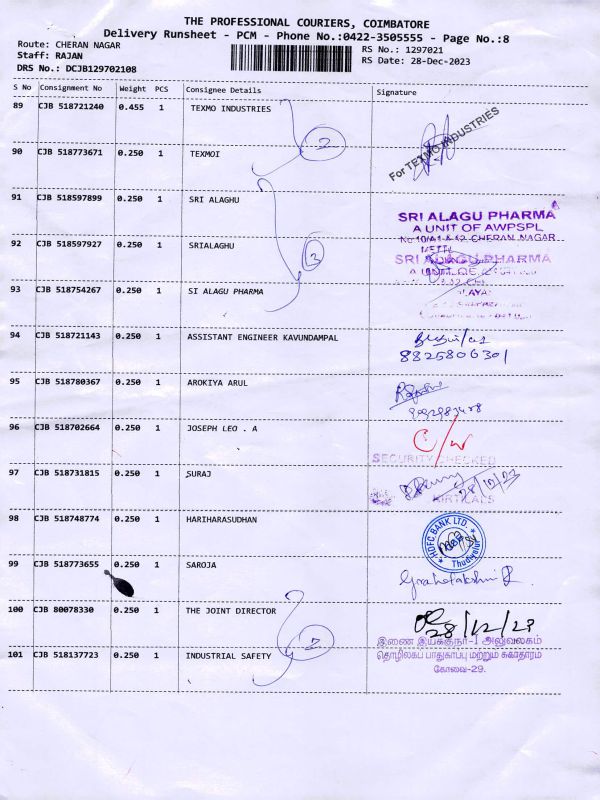 THE PROFESSIONAL COURIERS, COIMBATORE
Delivery Runsheet - PCM - Phone No.:0422-3505555 - Page No.:8
Route: CHERAN NAGAR
RS No.: 1297021
Staff: RAJAN
RS Date: 28-Dec-2023
DRS No.: DCJB129702108
S No Consignment No Weight PCS Consignee Details Signature
89 CJB 518721240 0.455 1 TEXMO INDUSTRIES
For TEXMO INDUSTRIES
2
90 CJB 518773671 0.250 1 TEXMOI
91 CJB 518597899 0.250 1 SRI ALAGHU
SRI ALAGU PHARMA
A UNIT OF AWPSPL
CHERAN NAGAR
92 CJB 518597927 0.250 1 SRIALAGHU
3
SRI ALAGU PHARMA
93 CJB 518754267 0.250 1 SI ALAGU PHARMA
94 CJB 518721143 0.250 1 ASSISTANT ENGINEER KAVUNDAMPAL
8825806301
95 CJB 518780367 0.250 1 AROKIYA ARUL
96 CJB 518702664 0.250 1 JOSEPH LEO . A
C/W
SECURITY CHECKED
97 CJB 518731815 0.250 1 SURAJ
28/12/23
98 CJB 518748774 0.250 1 HARIHARASUDHAN
HDFC BANK LTD.
Thudiyalur
99 CJB 518773655 0.250 1 SAROJA
100 CJB 80078330 0.250 1 THE JOINT DIRECTOR
28/12/23
2
இணை இயக்குநர்-I அலுவலகம்
101 CJB 518137723 0.250 1 INDUSTRIAL SAFETY
தொழிலகப் பாதுகாப்பு மற்றும் சுகாதாரம்
கோவை-29.